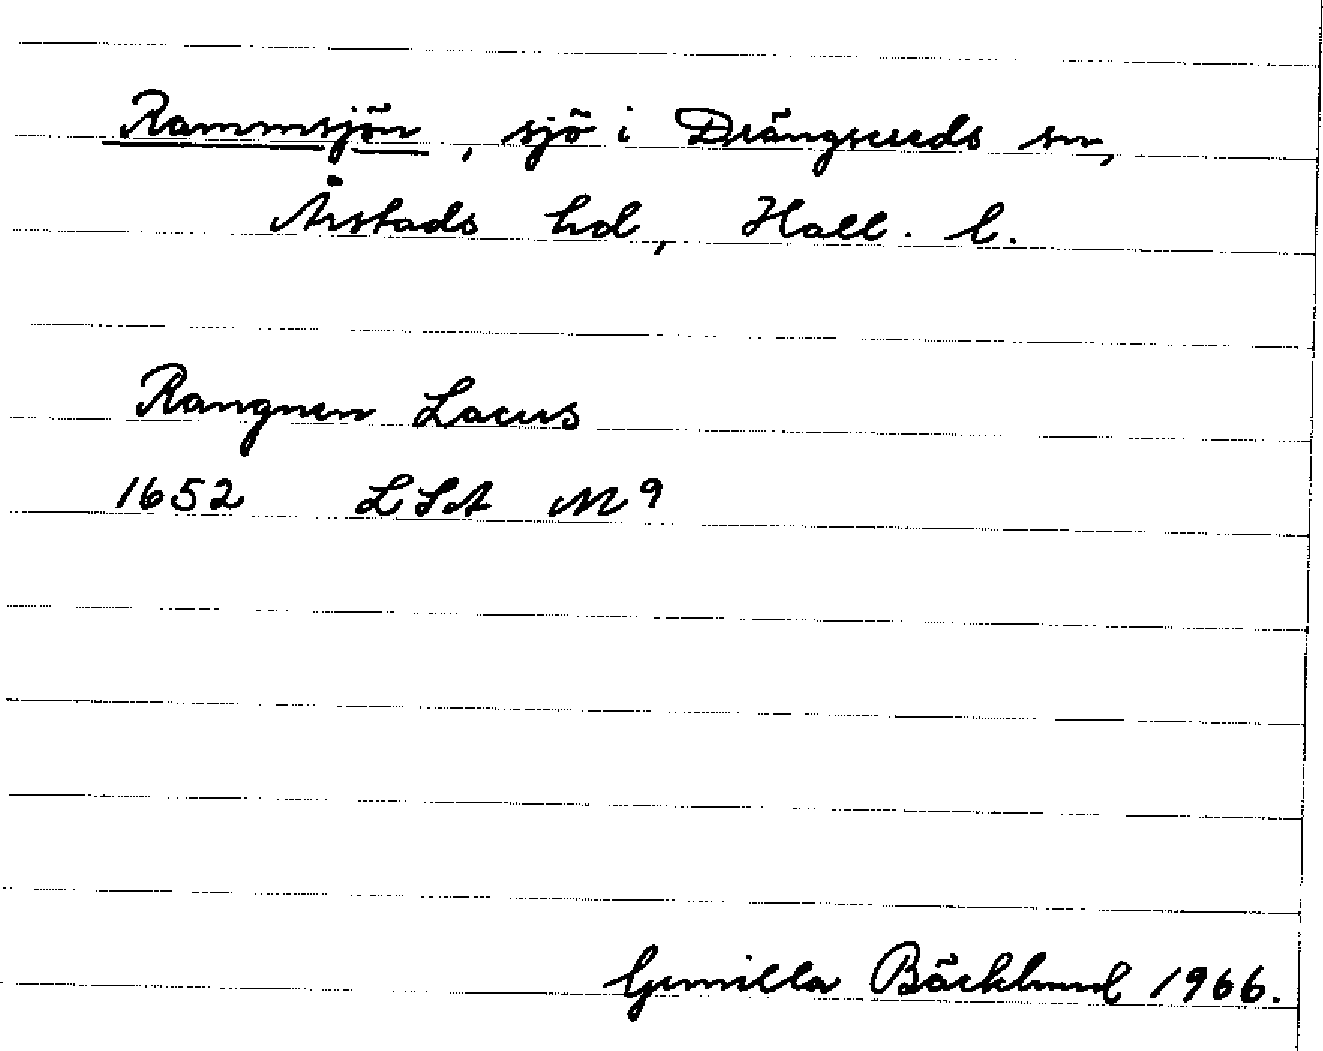 Rammsjön, sjö i Drängsereds sn,
Årstads hd, Hall. l.
Rangnen Lacus
1652 LSA M 9
Gunilla Bäcklund 1966.